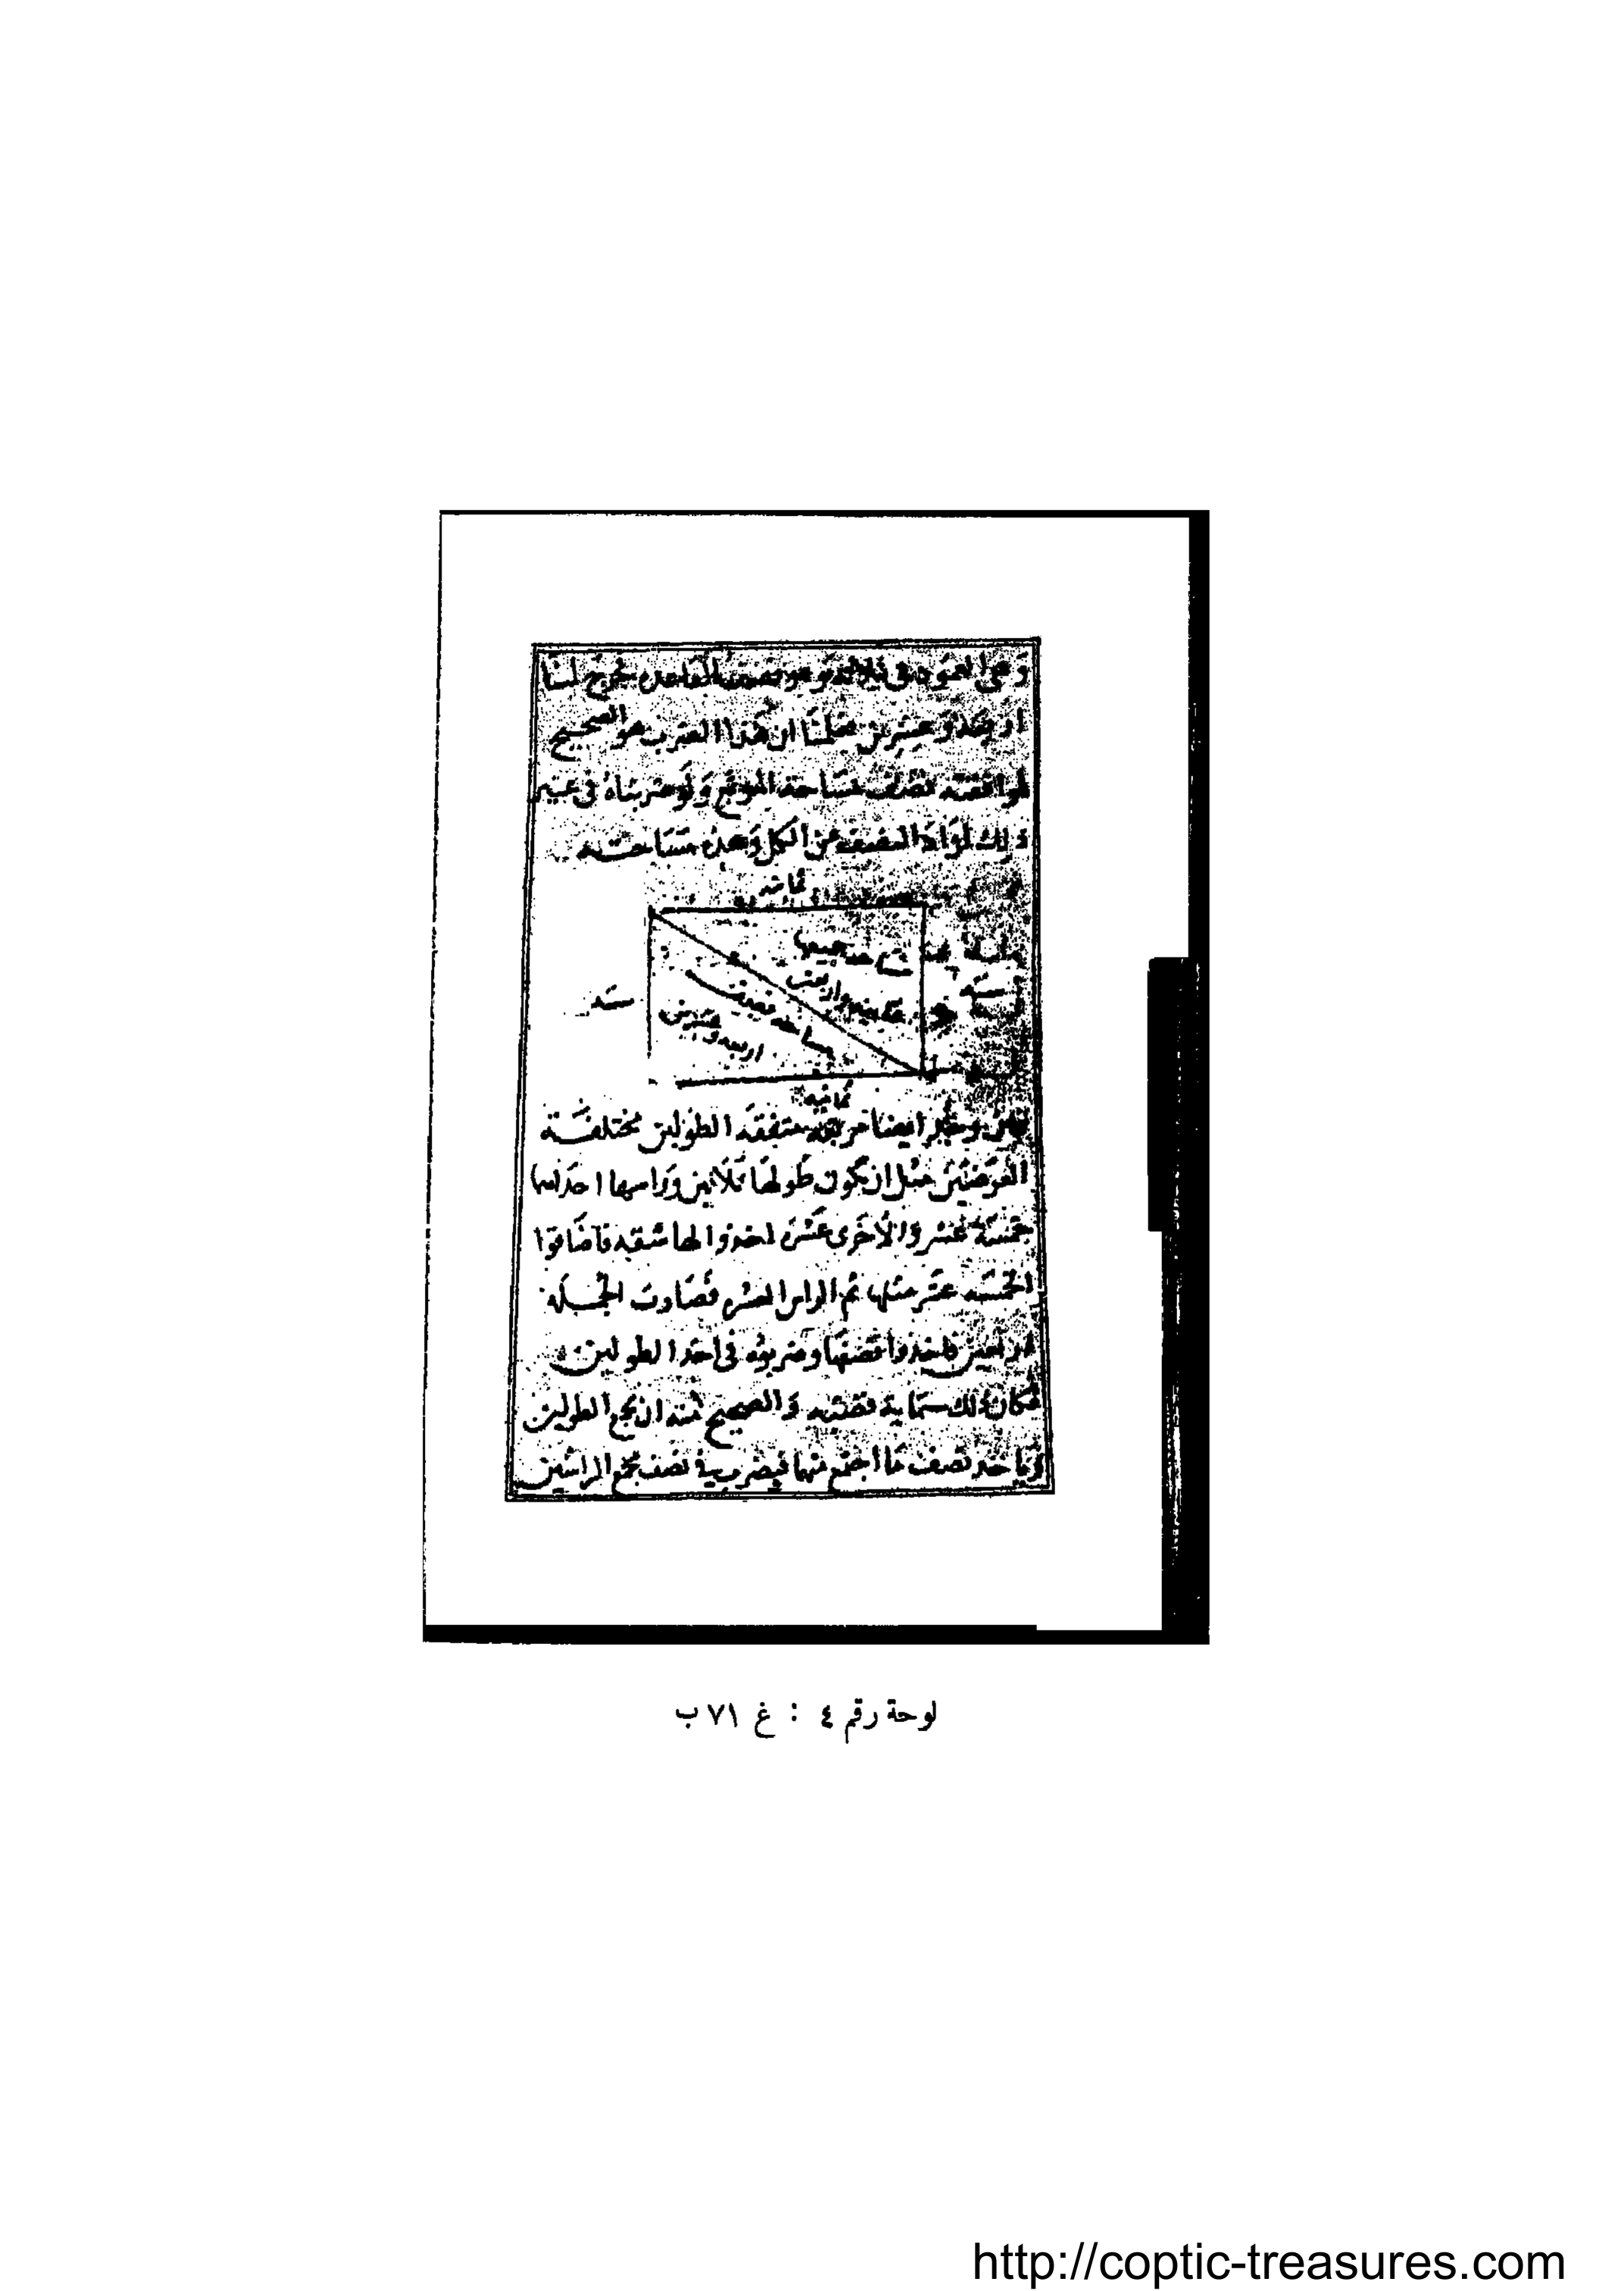 وهى العمود فى ثلاثة وهو نصف القاعدة يخرج لنا
اربعة وعشرين علمنا ان هذا الضرب هو الصحيح
لموافقته نصف مساحة المربع ولو ضربناه فى غير
ذلك لزاد النصف عن الكل وهذه مساحته
ثمانيه
مساحه جميعها
سته
ثمانيه واربعين
سته
مساحه نصفه
اربعه وعشرين
ثمانيه
ايضا متفقة الطولين مختلفة
العرضين مثل ان تكون طولها ثلاثين وراسها احدهما
خمسة عشر والاخرى عشره اخذوا لها شقيه فاضافوا
الخمسه عشر مثلها ثم الراس العشره فصارت الجمله
اربعين فاخذوا نصفها وضربوه فى احد الطولين
فكان ذلك ستماية قصبه والصحيح منه ان يجمع الطولين
وياخذ نصف ما اجتمع منهما فيضربه فى نصف مجمع الراسين
لوحة رقم ٤ : غ ٧١ ب
http://coptic-treasures.com